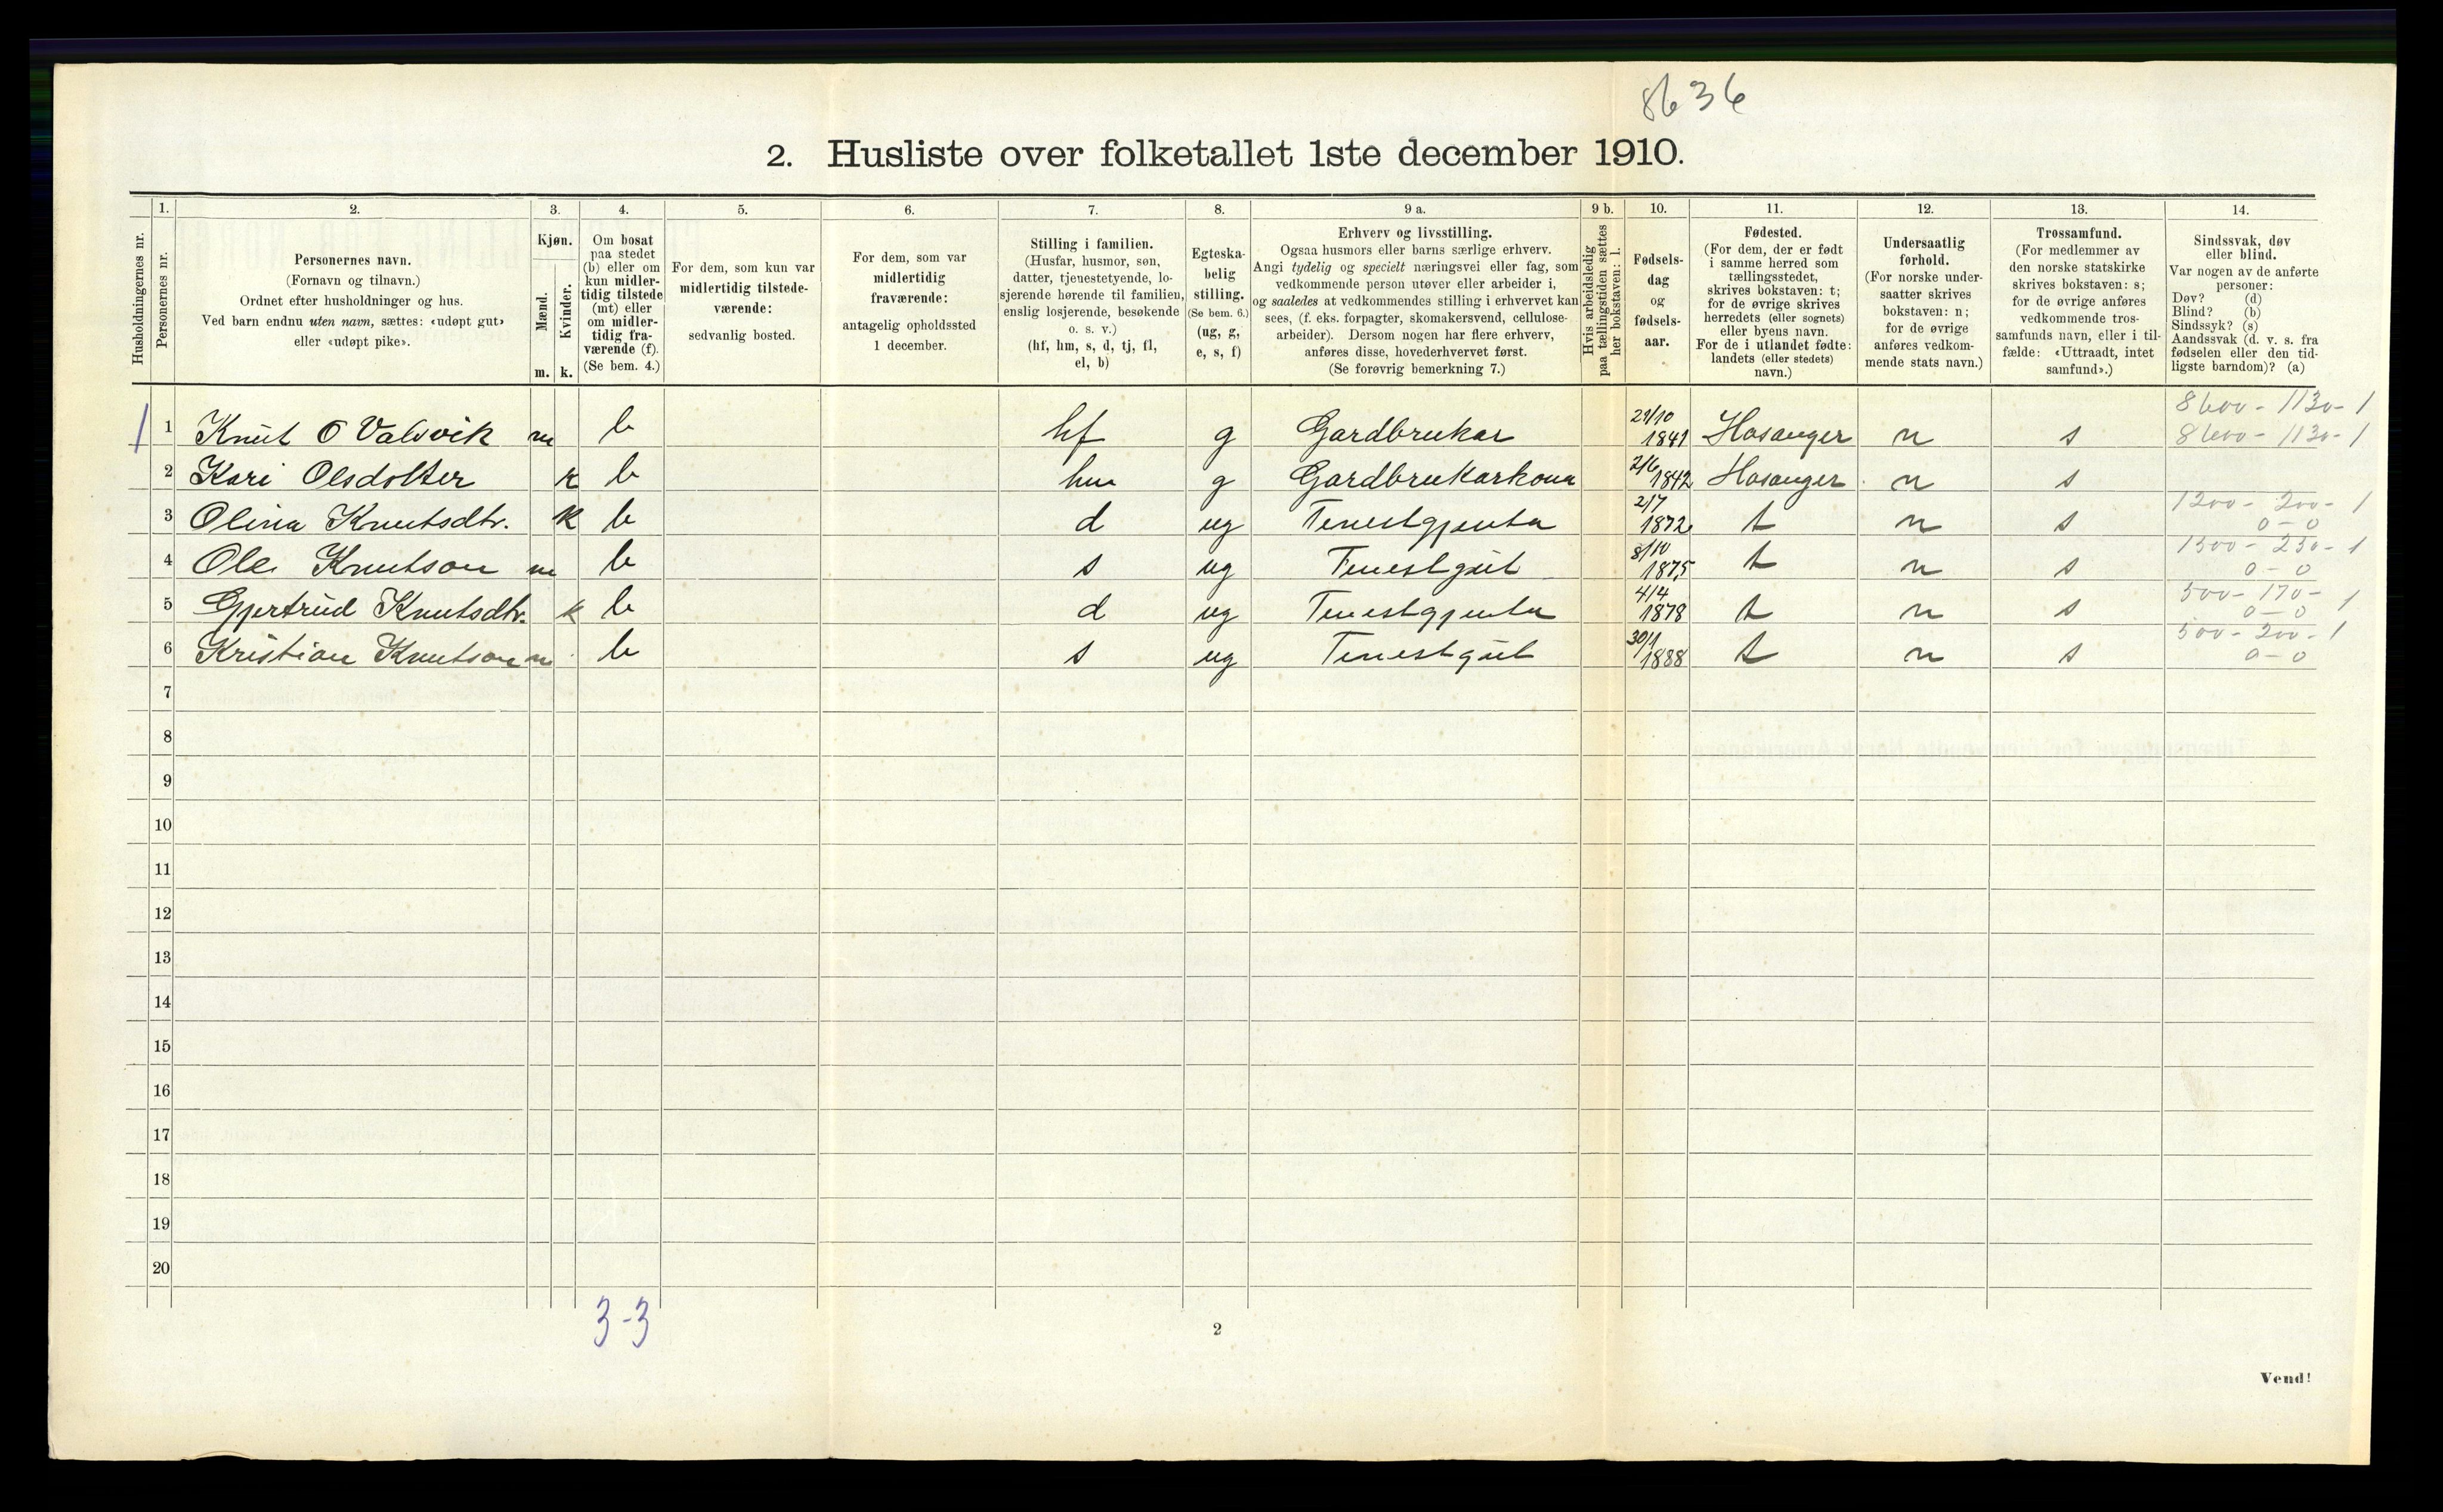 8636
2. Husliste over folketallet 1ste december 1910.
1. 2. 3. 4. 5. 6. 7. 8. 9 a. 9 b. 10. 11. 12. 13. 14.
Husholdningernes nr.
Personernes nr.
Personernes navn.
(Fornavn og tilnavn.)
Ordnet efter husholdninger og hus.
Ved barn endnu uten navn, sættes: «udøpt gut»
eller «udøpt pike».
Kjøn.
Mænd.
Kvinder.
m. k.
Om bosat
paa stedet
(b) eller om
kun midler-
tidig tilstede
(mt) eller
om midler-
tidig fra-
værende (f).
(Se bem. 4.)
For dem, som kun var
midlertidig tilstede-
værende:
sedvanlig bosted.
For dem, som var
midlertidig
fraværende:
antagelig opholdssted
1 december.
Stilling i familien.
(Husfar, husmor, søn,
datter, tjenestetyende, lo-
sjerende hørende til familien,
enslig losjerende, besøkende
o. s. v.)
(hf, hm, s, d, tj, fl,
el, b)
Egteska-
belig
stilling.
(Se bem. 6.)
(ug, g,
e, s, f)
Erhverv og livsstilling.
Ogsaa husmors eller barns særlige erhverv.
Angi tydelig og specielt næringsvei eller fag, som
vedkommende person utøver eller arbeider i,
og saaledes at vedkommendes stilling i erhvervet kan
sees, (f. eks. forpagter, skomakersvend, cellulose-
arbeider). Dersom nogen har flere erhverv,
anføres disse, hovederhvervet først.
(Se forøvrig bemerkning 7.)
Hvis arbeidsledig
paa tællingstiden sættes
her bokstaven: l.
Fødsels-
dag
og
fødsels-
aar.
Fødested.
(For dem, der er født
i samme herred som
tællingsstedet,
skrives bokstaven: t;
for de øvrige skrives
herredets (eller sognets)
eller byens navn.
For de i utlandet fødte:
landets (eller stedets)
navn.)
Undersaatlig
forhold.
(For norske under-
saatter skrives
bokstaven: n;
for de øvrige
anføres vedkom-
mende stats navn.)
Trossamfund.
(For medlemmer av
den norske statskirke
skrives bokstaven: s;
for de øvrige anføres
vedkommende tros-
samfunds navn, eller i til-
fælde: «Uttraadt, intet
samfund».)
Sindssvak, døv
eller blind.
Var nogen av de anførte
personer:
Døv? (d)
Blind? (b)
Sindssyk? (s)
Aandssvak (d. v. s. fra
fødselen eller den tid-
ligste barndom)? (a)
8600 - 1130 - 1
1 1 Knut O Valsvik m b hf g Gardbrukar 21/10 1841 Hosanger n s 8600 - 1130 - 1
2 Kari Olsdotter k b hm g Gardbrukarkona 2/6 1842 Hosanger n s
1200 - 200 - 1
3 Olina Knutsdtr. k b d ug Tenestgjenta 2/7 1872 t n s 0 - 0
1500 - 250 - 1
4 Ole Knutson m b s ug Tenestgut 8/10 1875 t n s 0 - 0
500 - 170 - 1
5 Gjertrud Knutsdtr. k b d ug Tenestgjenta 4/4 1878 t n s 0 - 0
500 - 200 - 1
6 Kristian Knutson m b s ug Tenestgut 30/1 1888 t n s 0 - 0
7
8
9
10
11
12
13
14
15
16
17
18
19
20
3-3
2
Vend!